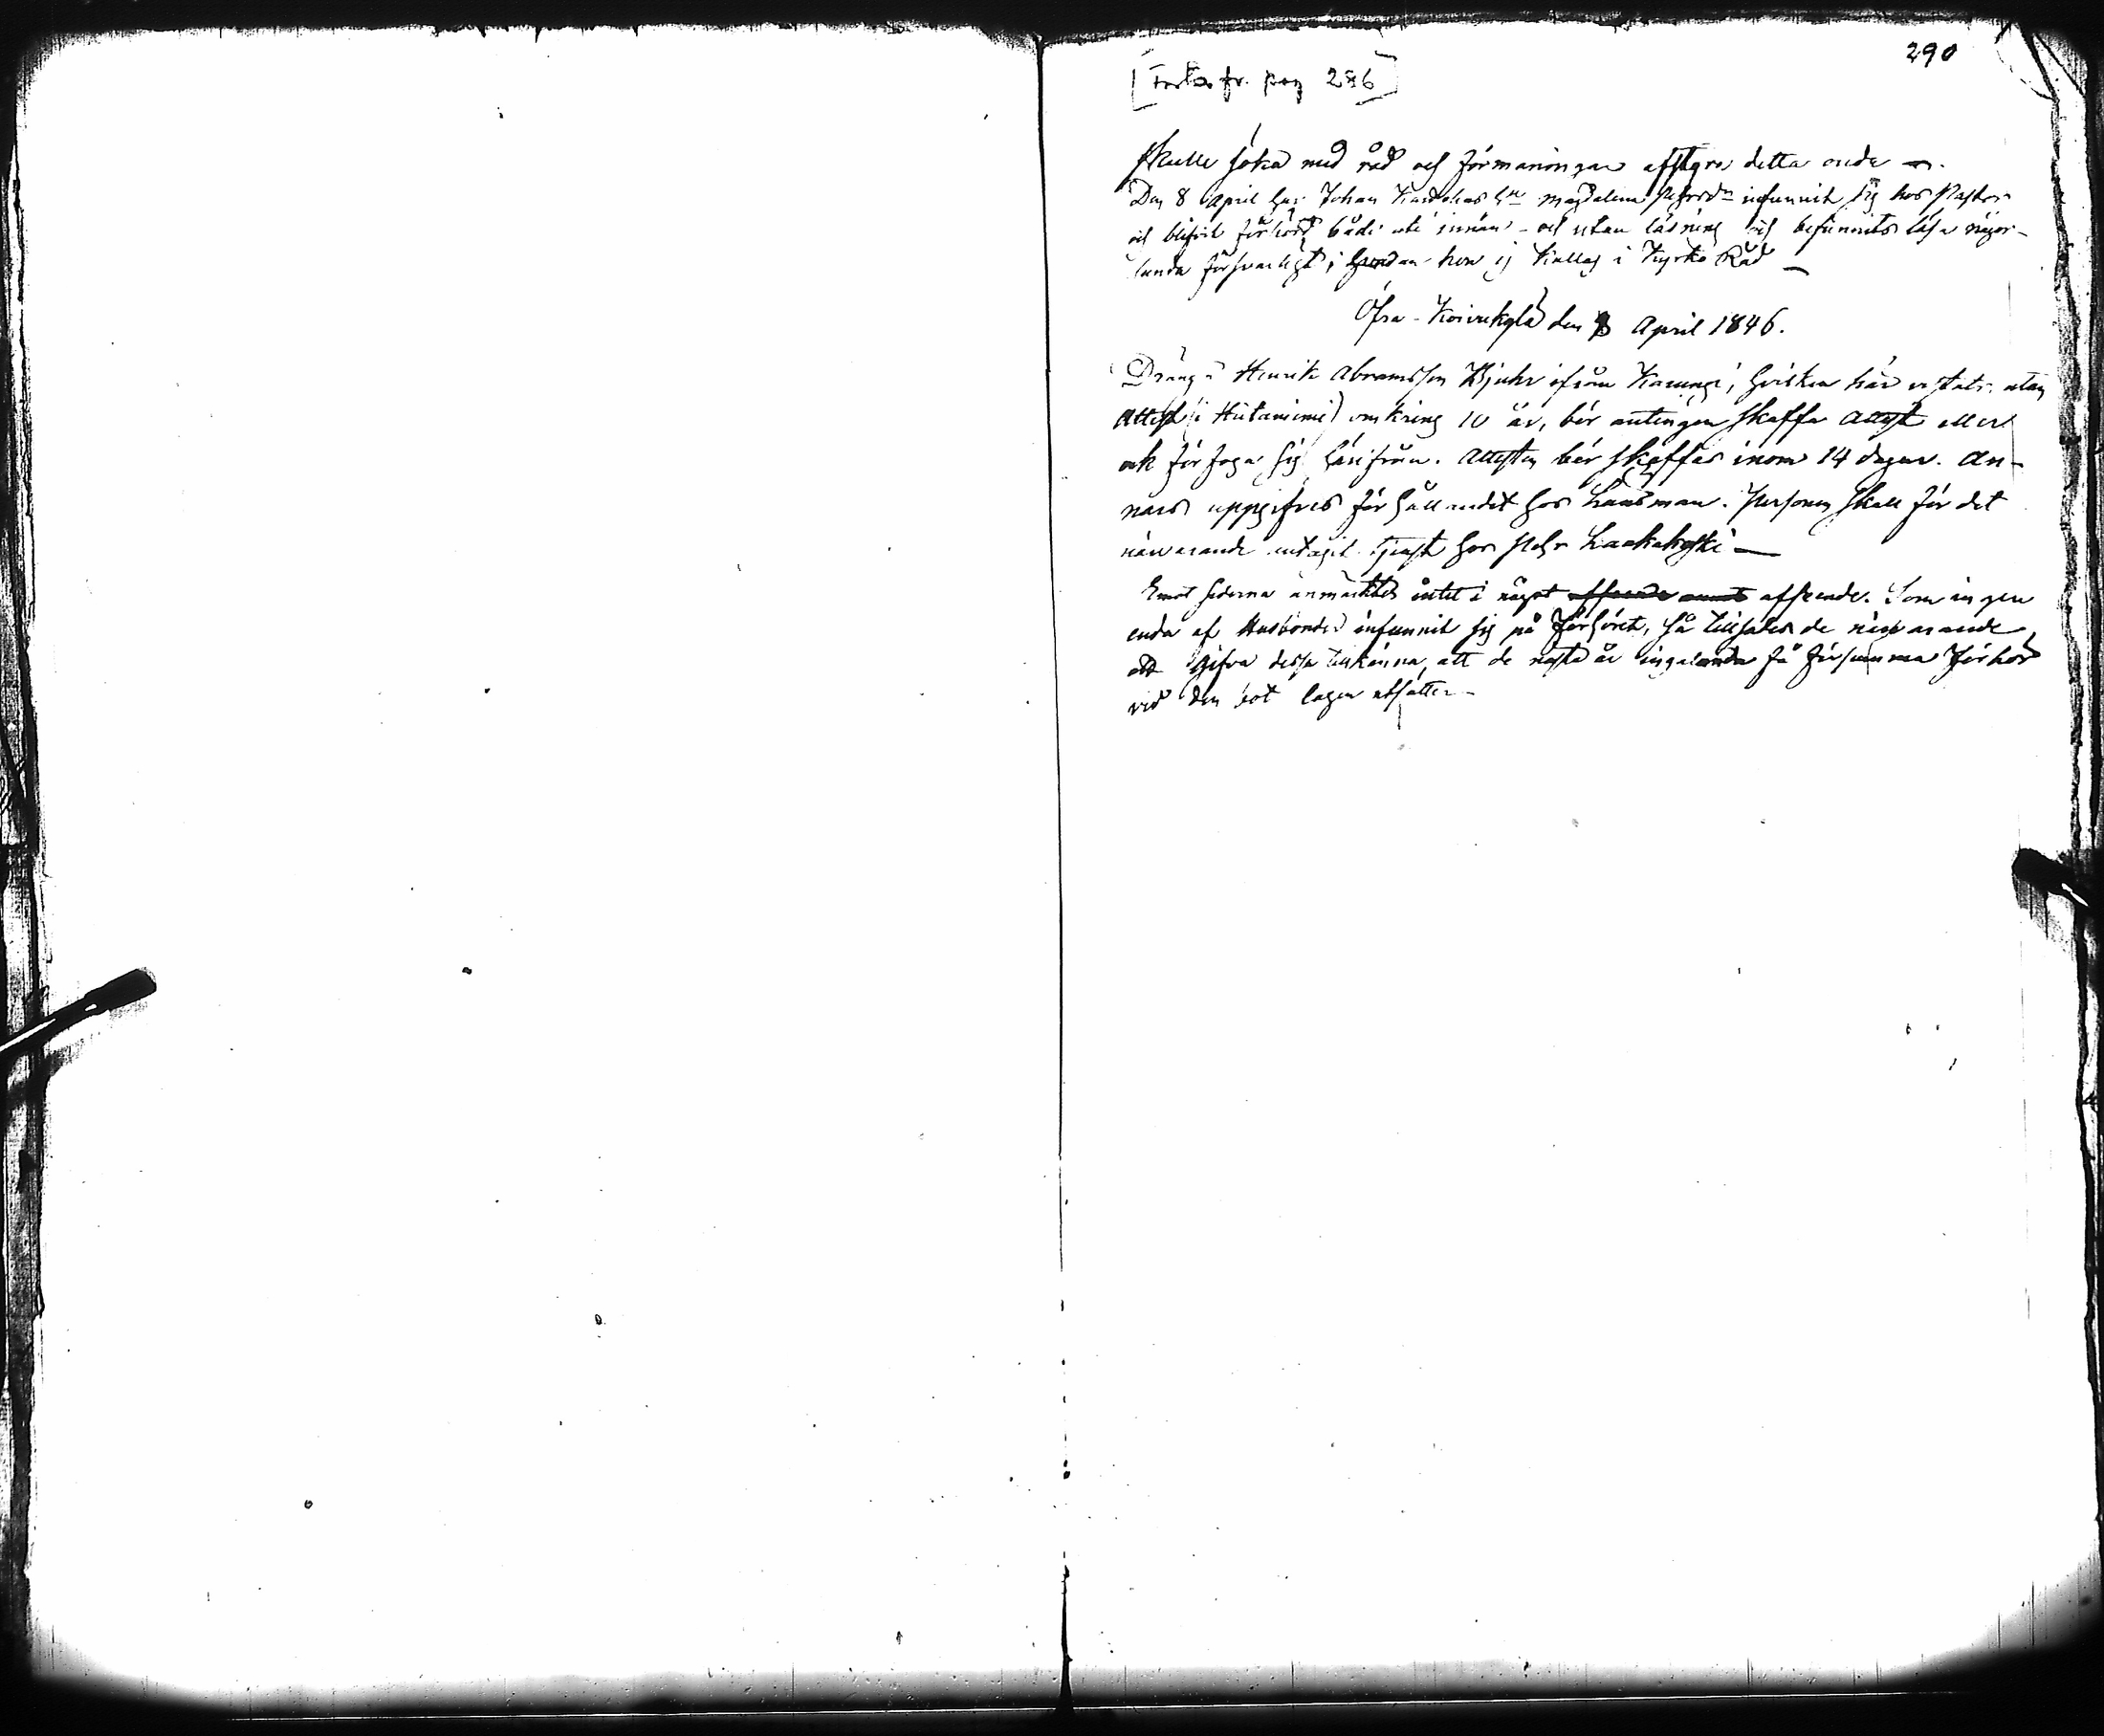 290
[Forts. fr. pag 286]
skulle söka med råd och förmaningar afstyra detta onda —.
Den 8 April har Johan hu Magdalena Pehrsdr infunnit sig hos Pastor
och blifvit förhörd både uti innan- och utan läsning och befunnits läsa någor-
lunda försvarligt; hon ej kallas i Kyrko Råd —
Öfra-Koivukylä den 8 April 1846.
Drängen Henrik Abramsson ifrån Karungi, hvilken här vistats utan
Attest (i Hietaniemi) omkring 10 år, bör antingen skaffa Attest eller
ock förfoga sig härifrån. Attesten bör skaffas inom 14 dagar. An-
nars uppgifves förhållandet hos Länsman. Personen skall för det
närvarande antagit tjenst hos Pehr Laakakoski —
Emot sederna anmärktes intet i något afseende annat afseende. Som ingen
enda af Husbönder infunnit sig på Förhöret, så tillsades de närvarande
att gifva dessa tillkänna, att de nästa år ingalunda få försumma Förhör
vid den bot lagen utsätter —